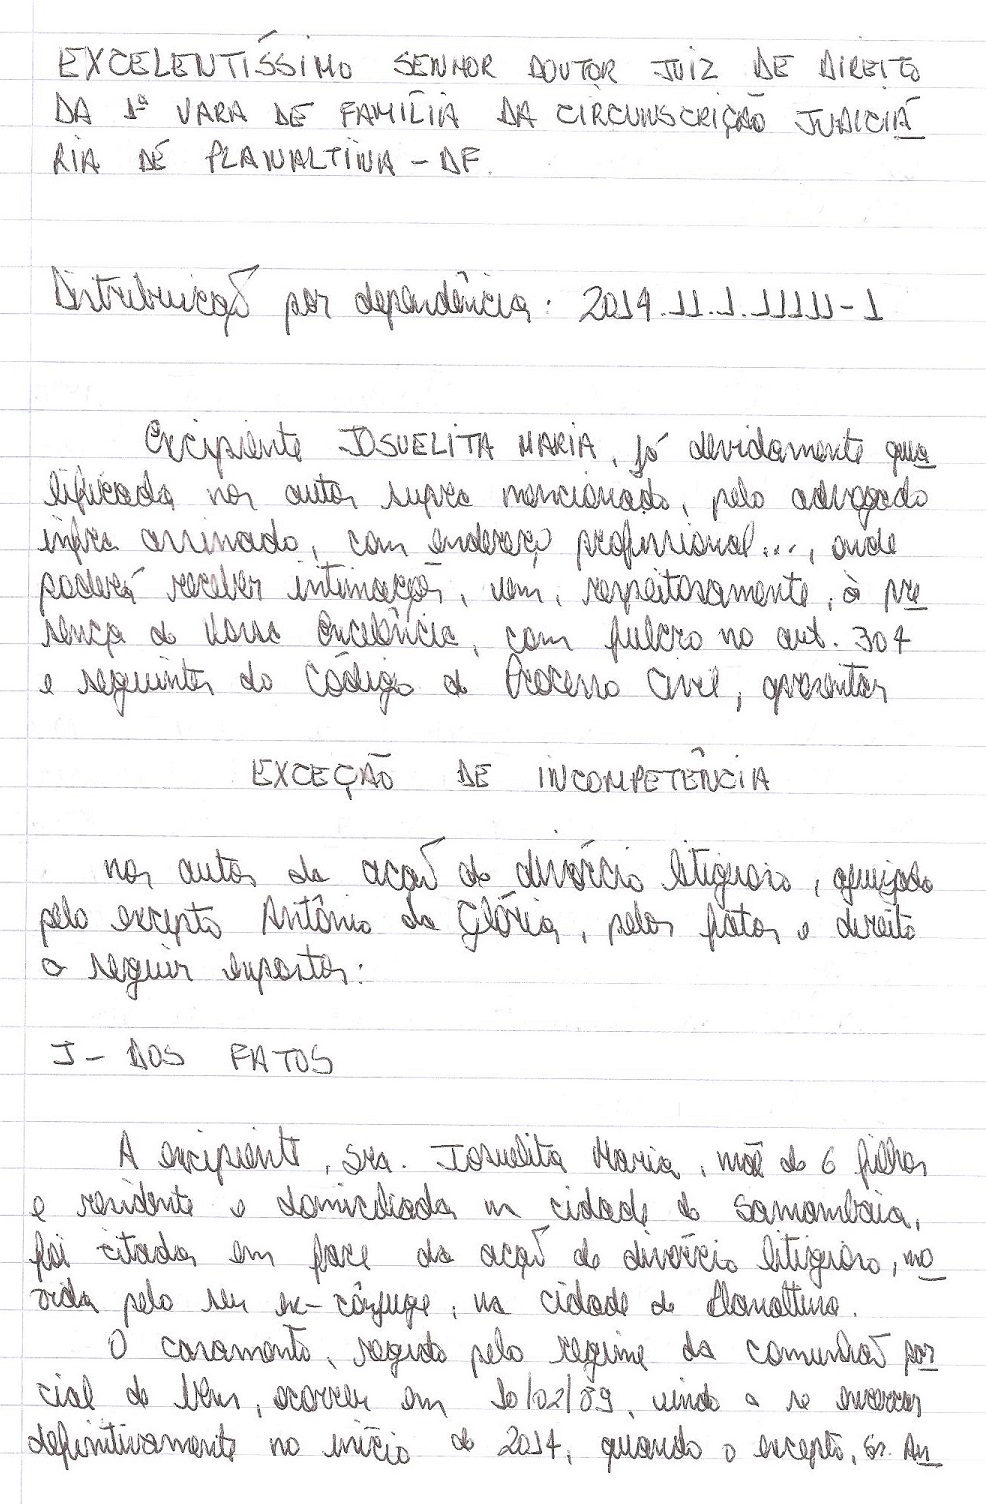 EXCELENTÍSSIMO SENHOR DOUTOR JUIZ DE DIREITO
DA 1ª VARA DE FAMÍLIA DA CIRCUNSCRIÇÃO JUDICIÁ
RIA DE PLANALTINA - DF.
Distribuição por dependência: 2014.11.1.11111-1
Excipiente JOSUELITA MARIA, já devidamente qua
lificada nos autos supra mencionado, pelo advogado
infra assinado, com endereço profissional..., onde
poderá receber intimações, vem, respeitosamente, à pre
sença de Vossa Excelência, com fulcro no art. 304
e seguintes do Código de Processo Civil, apresentar
EXCEÇÃO DE INCOMPETÊNCIA
nos autos da ação de divórcio litigioso, ajuizada
pelo excepto Antônio da Glória, pelos fatos e direito
a seguir expostos:
I - DOS FATOS
A excipiente, Sra. Josuelita Maria, mãe de 6 filhos
e residente e domiciliada na cidade de Samambaia,
foi citada em face da ação de divórcio litigioso, mo
vida pelo seu ex-cônjuge, na cidade de Planaltina.
O casamento, regido pelo regime da comunhão par
cial de bens, ocorreu em 10/02/89, vindo a se encerrar
definitivamente no início de 2014, quando o excepto, Sr. An